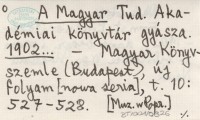 ° A Magyar Tud. Aka-
démiai könyvtár gyásza.
1902... — Magyar Könyv-
szemle (Budapest), új
folyam [nowa seria], t. 10:
527-528. [Muz. w Opa.]